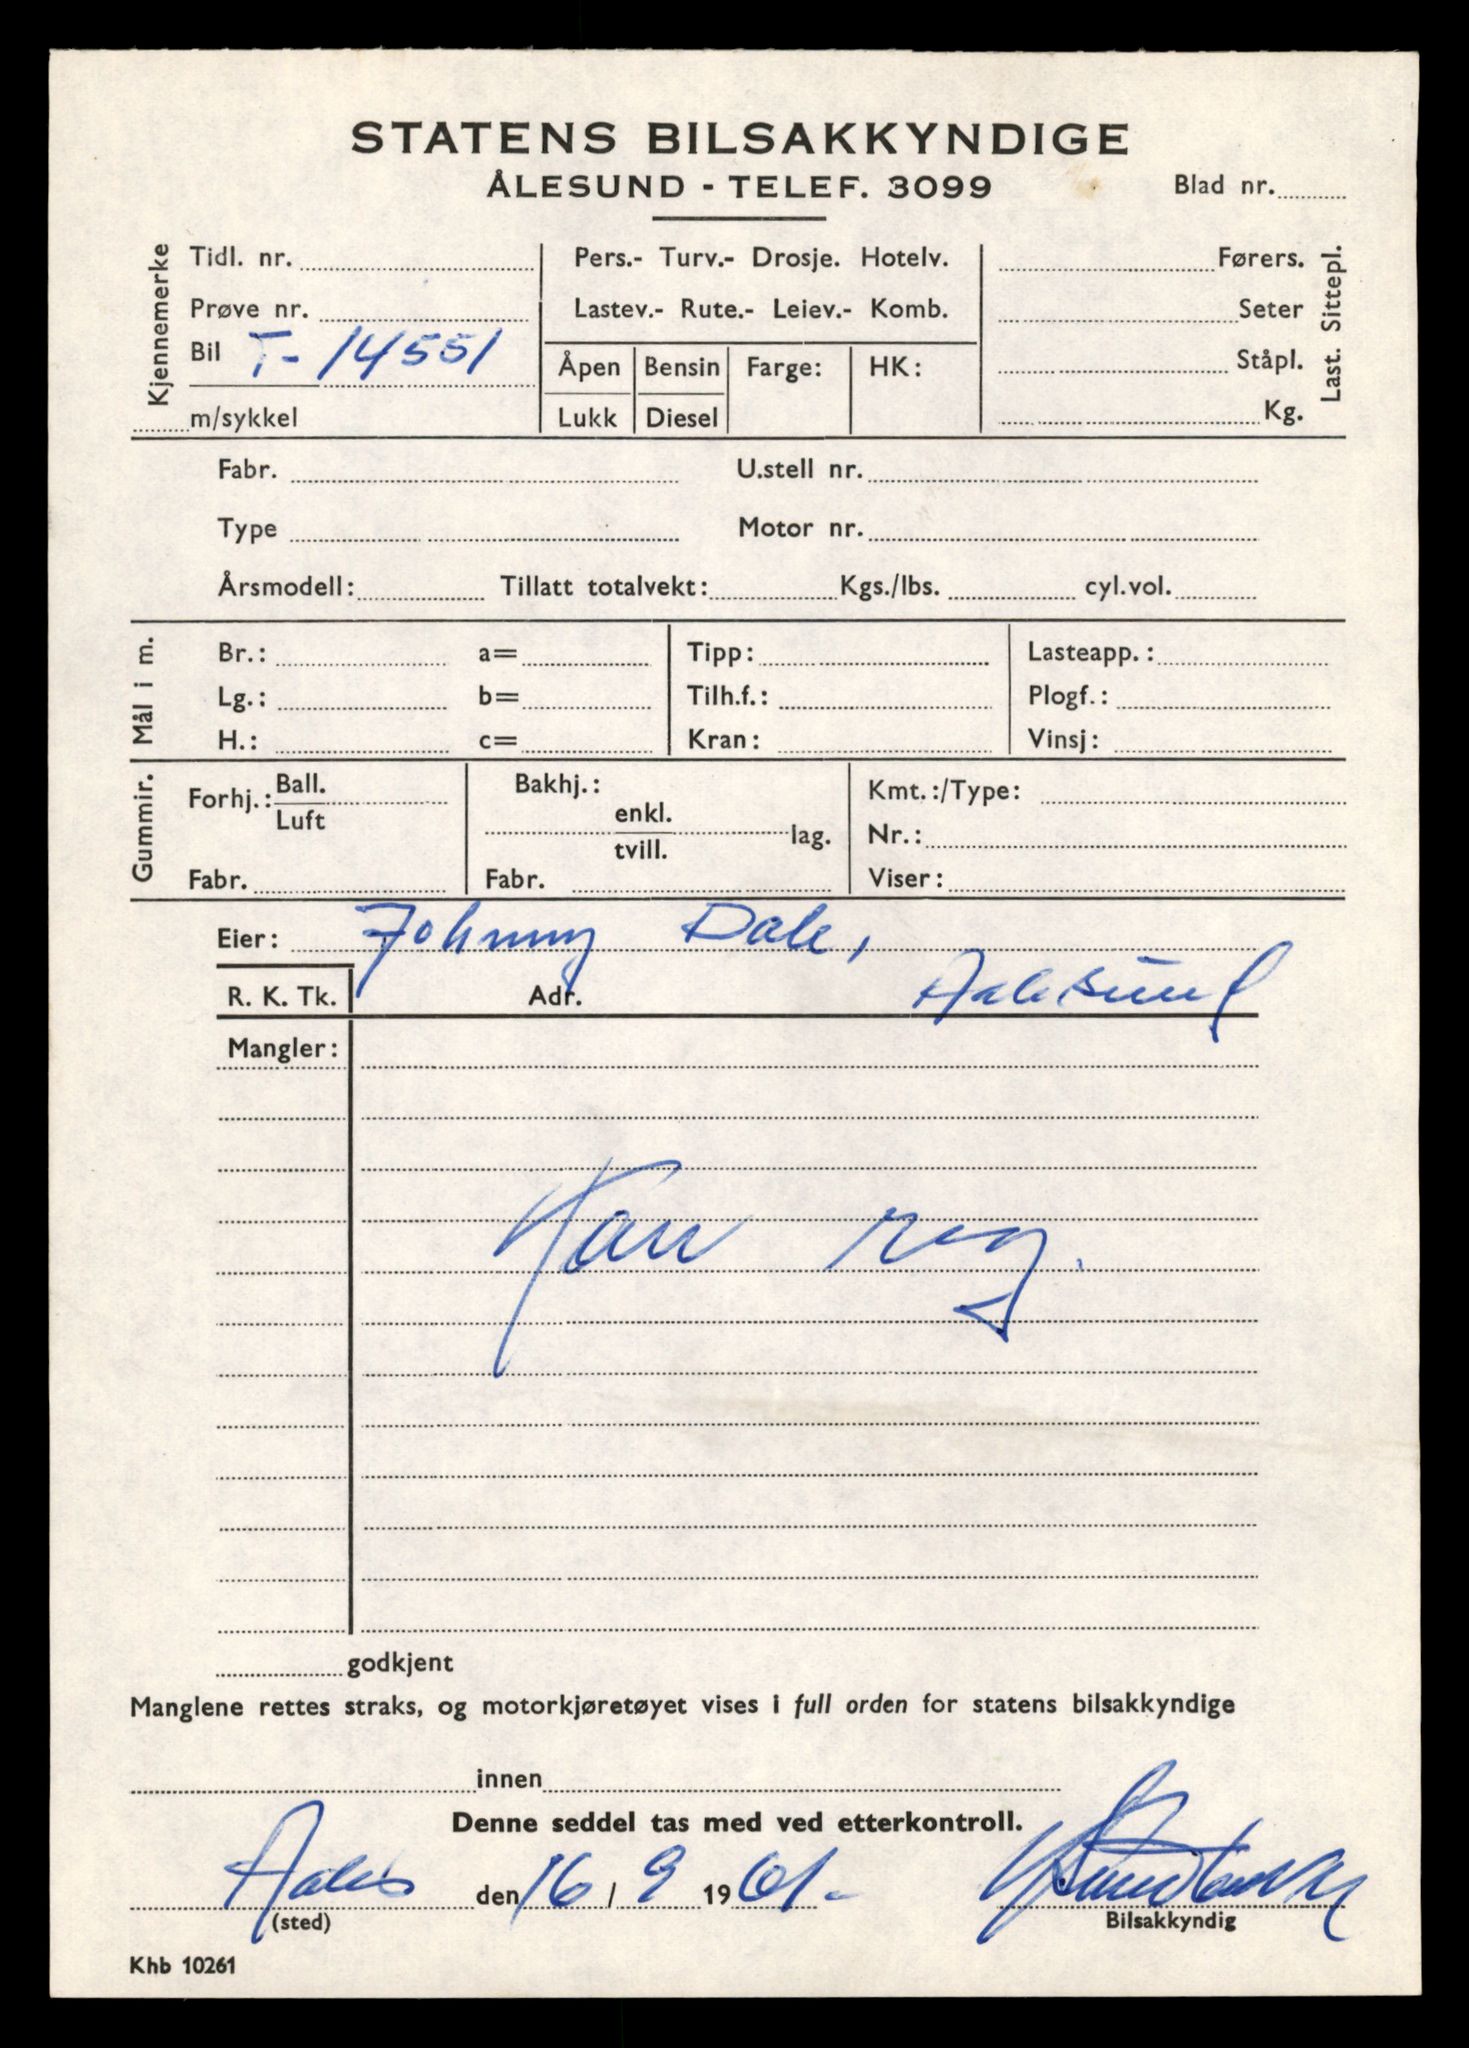 STATENS BILSAKKYNDIGE
ÅLESUND - TELEF. 3099
Blad nr.
Kjennemerke
Tidl. nr.
Prøve nr.
Bil T- 14551
m/sykkel
Pers.- Turv.- Drosje. Hotelv.
Lastev.- Rute.- Leiev.- Komb.
Åpen Bensin Farge: HK:
Lukk Diesel
Førers.
Seter
Ståpl.
Kg.
Last. Sittepl.
Fabr. U.stell nr.
Type Motor nr.
Årsmodell: Tillatt totalvekt: Kgs./lbs. cyl.vol.
Mål i m.
Br.: a= Tipp: Lasteapp.:
Lg.: b= Tilh.f.: Plogf.:
H.: c= Kran: Vinsj:
Gummir.
Forhj.: Ball.
Luft
Fabr.
Bakhj.:
enkl.
tvill. lag.
Fabr.
Kmt.:/Type:
Nr.:
Viser:
Eier: Johnny Dale,
R. K. Tk. Adr. Aalesund
Mangler:
Kan reg.
godkjent
Manglene rettes straks, og motorkjøretøyet vises i full orden for statens bilsakkyndige
innen
Denne seddel tas med ved etterkontroll.
Aales den 16 / 9 1961.-
(sted) Bilsakkyndig
Khb 10261